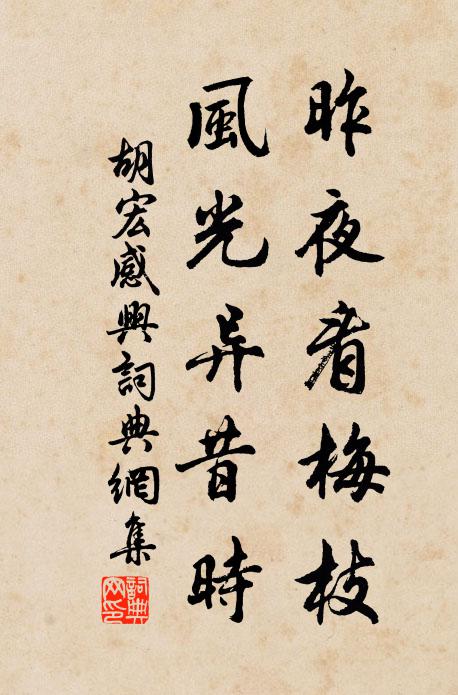 昨夜看梅枝
風光异昔時
胡宏感興詞典網集
詞典网印